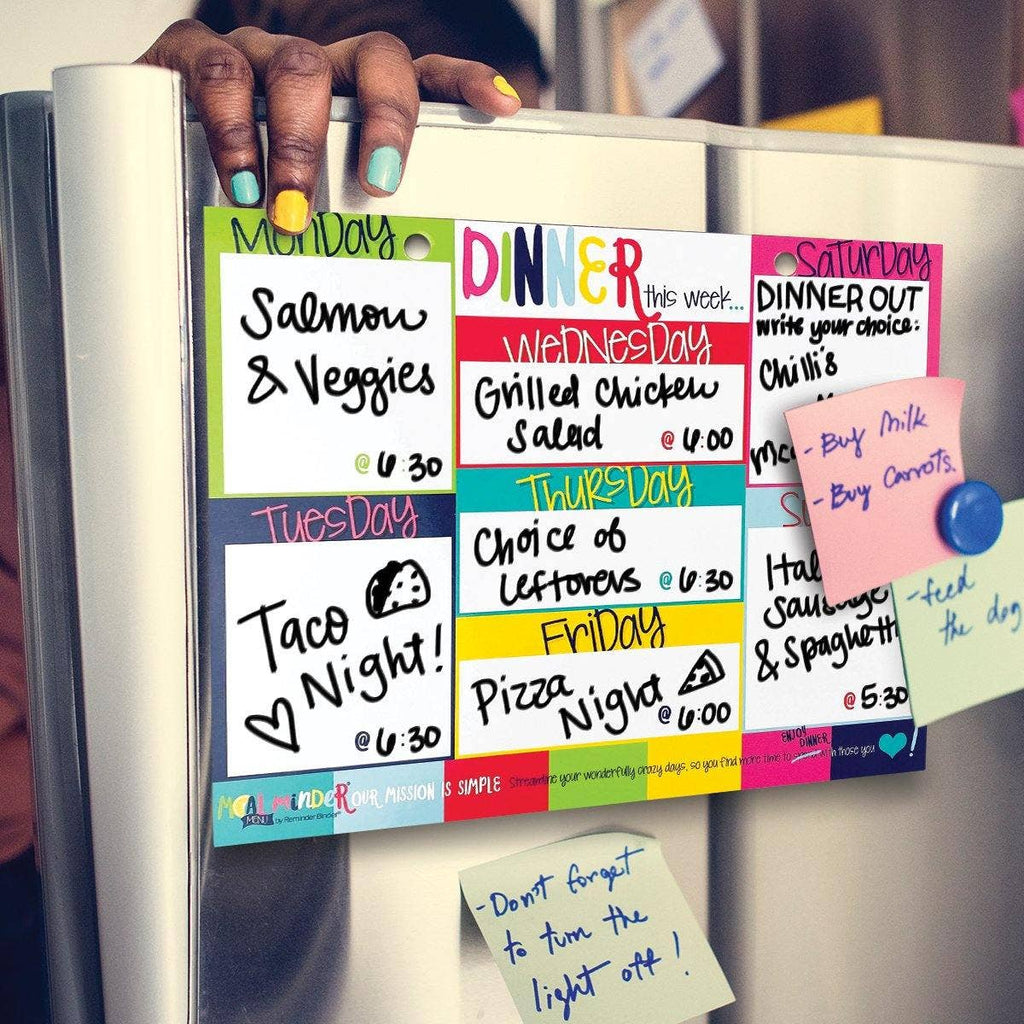 MonDay
Salmon
& Veggies
@ 6:30
TuesDay
Taco
Night!
@ 6:30
DINNER
this week...
WeDNesDay
Grilled Chicken
Salad @ 6:00
ThursDay
Choice of
Leftovers @ 6:30
FriDay
Pizza
Night @ 6:00
SaturDay
DINNER OUT
write your choice:
Chilli's
& Spaghetti
@ 5:30
- Buy Milk
- Buy Carrots.
- feed
the dog
MealminDeR
MENU by Reminder Binder®
OUR MISSION IS SIMPLE
Streamline your wonderfully crazy days, so you find more time to with those you !
ENJOY
DINNER
- Don't forget
to turn the
light off!